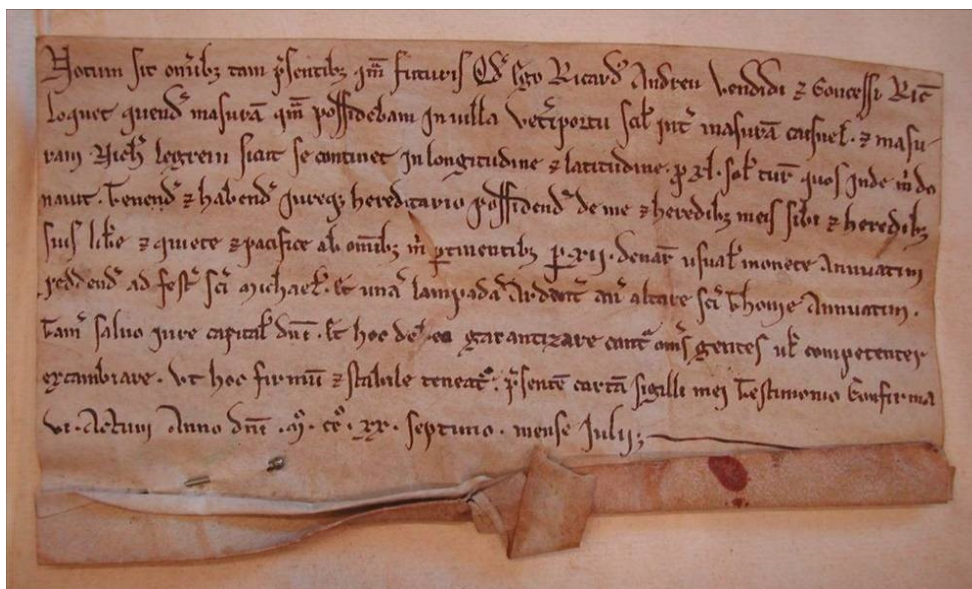 Notum sit om̄ibꝫ tam p̄sentibꝫ qm̄ futuris Qd̕ Ego Ricard̕ Andreu vendidi ⁊ Concessi Ric̄
loquet quend̕ masurā qm̄ possidebam In villa Vet̕iportu scil̕ int̕ masurā ⁊ masu-
ram Rich̕ legrein sicut se continet In longitudine ⁊ latitudine · p̱ xl · sol̕ tur̄ quos Inde m̄ do
nauit · Tenend̕ ⁊ habend̕ Iureqꝫ hereditario possidend̕ de me ⁊ heredibꝫ meis sibi ⁊ heredibꝫ
suis lib̕e ⁊ quiete ⁊ pacifice ab om̄ibꝫ m̄ ꝑtinentibꝫ ꝑ · xii · denar̄ usual̕ monete Annuatim
reddend̕ ad fest̕ sc̄i Michael̕ · Et unā lampadā Ardent̕ an̄ altare sc̄i Thome Annuatim ·
Tam̄ saluo Iure capital̕ dn̄i · Et hoc deb̕eo garantizare cont̕ om̄s gentes ul̕ competenter
excambiare · Vt hoc firmū ⁊ stabile teneat᷑ · p̄sentē cartā sigilli mei Testimonio Confirma
ui · Actum Anno dn̄i · Mͦ · ccͦ · xx · septimo · mense Iulii ;